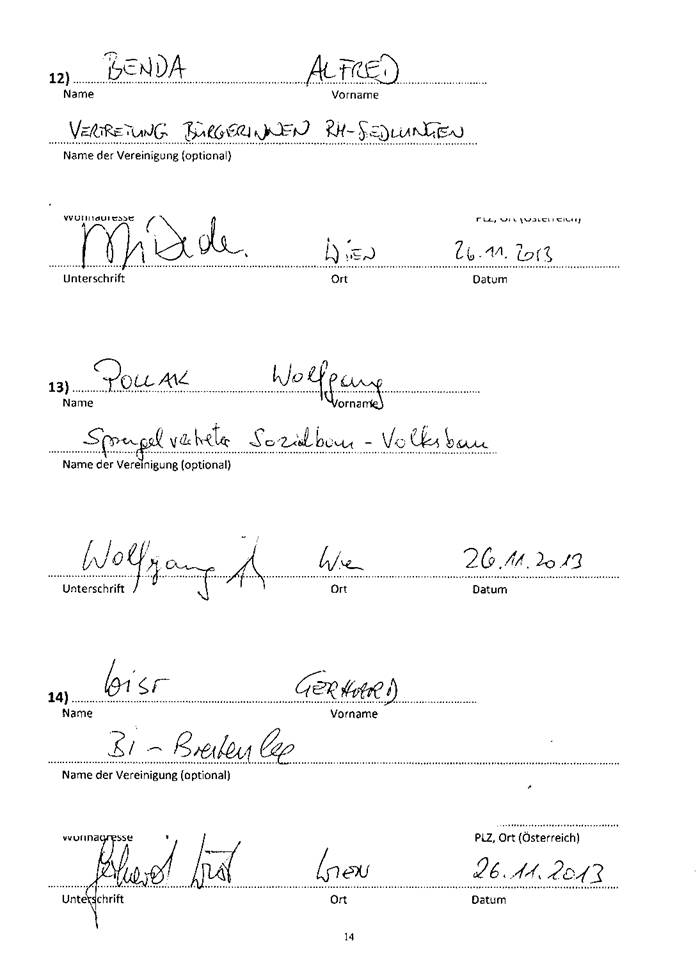 12) BENDA ALFRED
Name Vorname
VERTRETUNG BÜRGERINNEN RH-SIEDLUNGEN
Name der Vereinigung (optional)
Wohnadresse PLZ, Ort (Österreich)
WIEN 26.11.2013
Unterschrift Ort Datum
13) POLLAK Wolfgang
Name Vorname
Sprengelvertreter Sozialbau - Volksbau
Name der Vereinigung (optional)
Wolfgang 26.11.2013
Unterschrift Ort Datum
14) WIST GERHARD
Name Vorname
BI - Breitenlee
Name der Vereinigung (optional)
Wohnadresse PLZ, Ort (Österreich)
Gerhard Wist WIEN 26.11.2013
Unterschrift Ort Datum
14